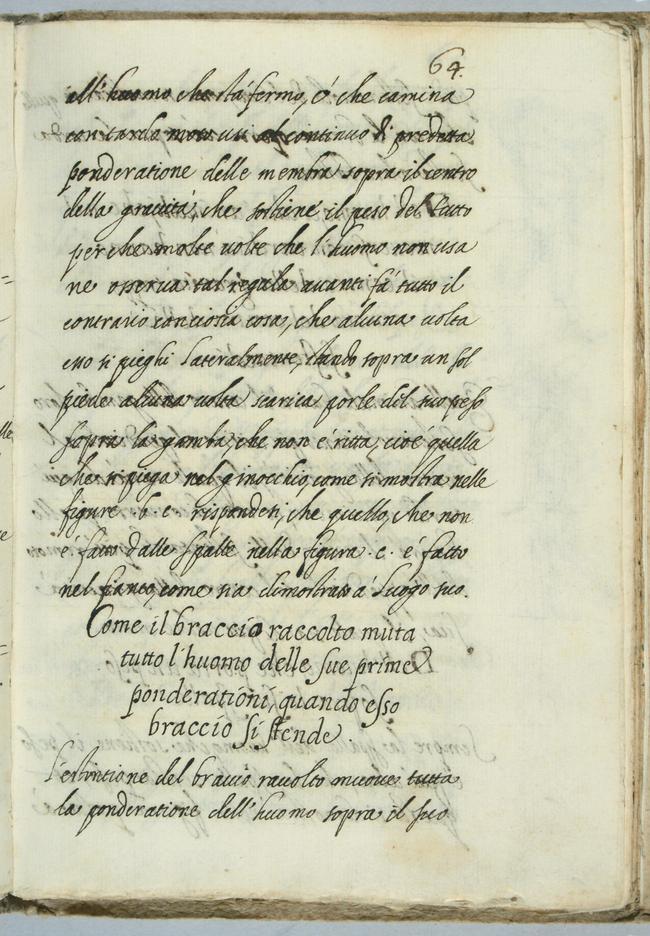 64.
all'huomo che stà fermo, ò che camina
con tardo moto usi al continuo di predetta
ponderatione delle membra sopra il centro
della gravità, che sostiene il peso del tutto
perche molte volte che l'huomo non usa
ne osserva tal regala avanti fà tutto il
contrario conciosia cosa, che alcuna volta
esso si pieghi lateralmente, stando sopra un sol
piede alcuna volta scarica parte del suo peso
sopra la gamba, che non é ritta, cioé quella
che si piega nel ginocchio, come si mostra nelle
figure . b. c. rispondesi, che quello, che non
é fatto dalle spalle nella figura . c . é fatto
nel fianco, come sia dimostrato à luogo suo.
Come il braccio raccolto muta
tutto l'huomo delle sue prime
ponderationi, quando esso
braccio si stende
L'estintione del bracio racolto muove tutta
la ponderatione dell'huomo sopra il suo